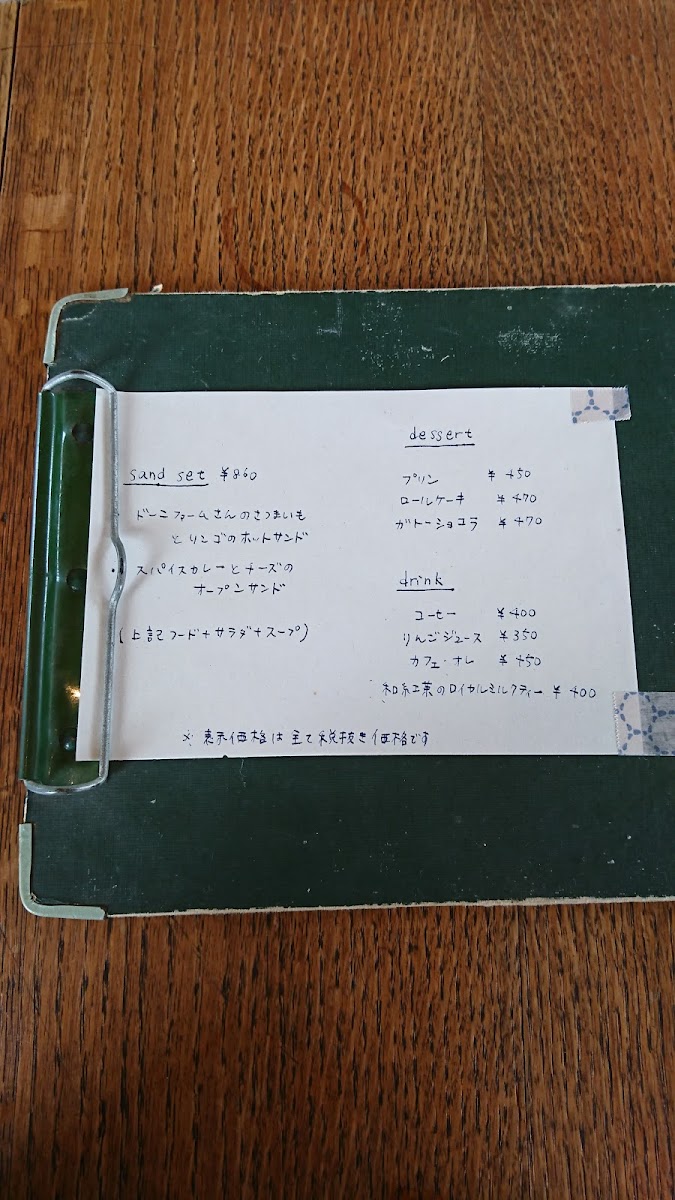 sand set ¥860
ドーニファームさんのさつまいも
とリンゴのホットサンド
スパイスカレーとチーズの
オープンサンド
(上記フード+サラダ+スープ)
dessert
プリン ¥450
ロールケーキ ¥470
ガトーショコラ ¥470
drink
コーヒー ¥400
りんごジュース ¥350
カフェ・オレ ¥450
和紅茶のロイヤルミルクティー ¥400
※表示価格は全て税抜き価格です